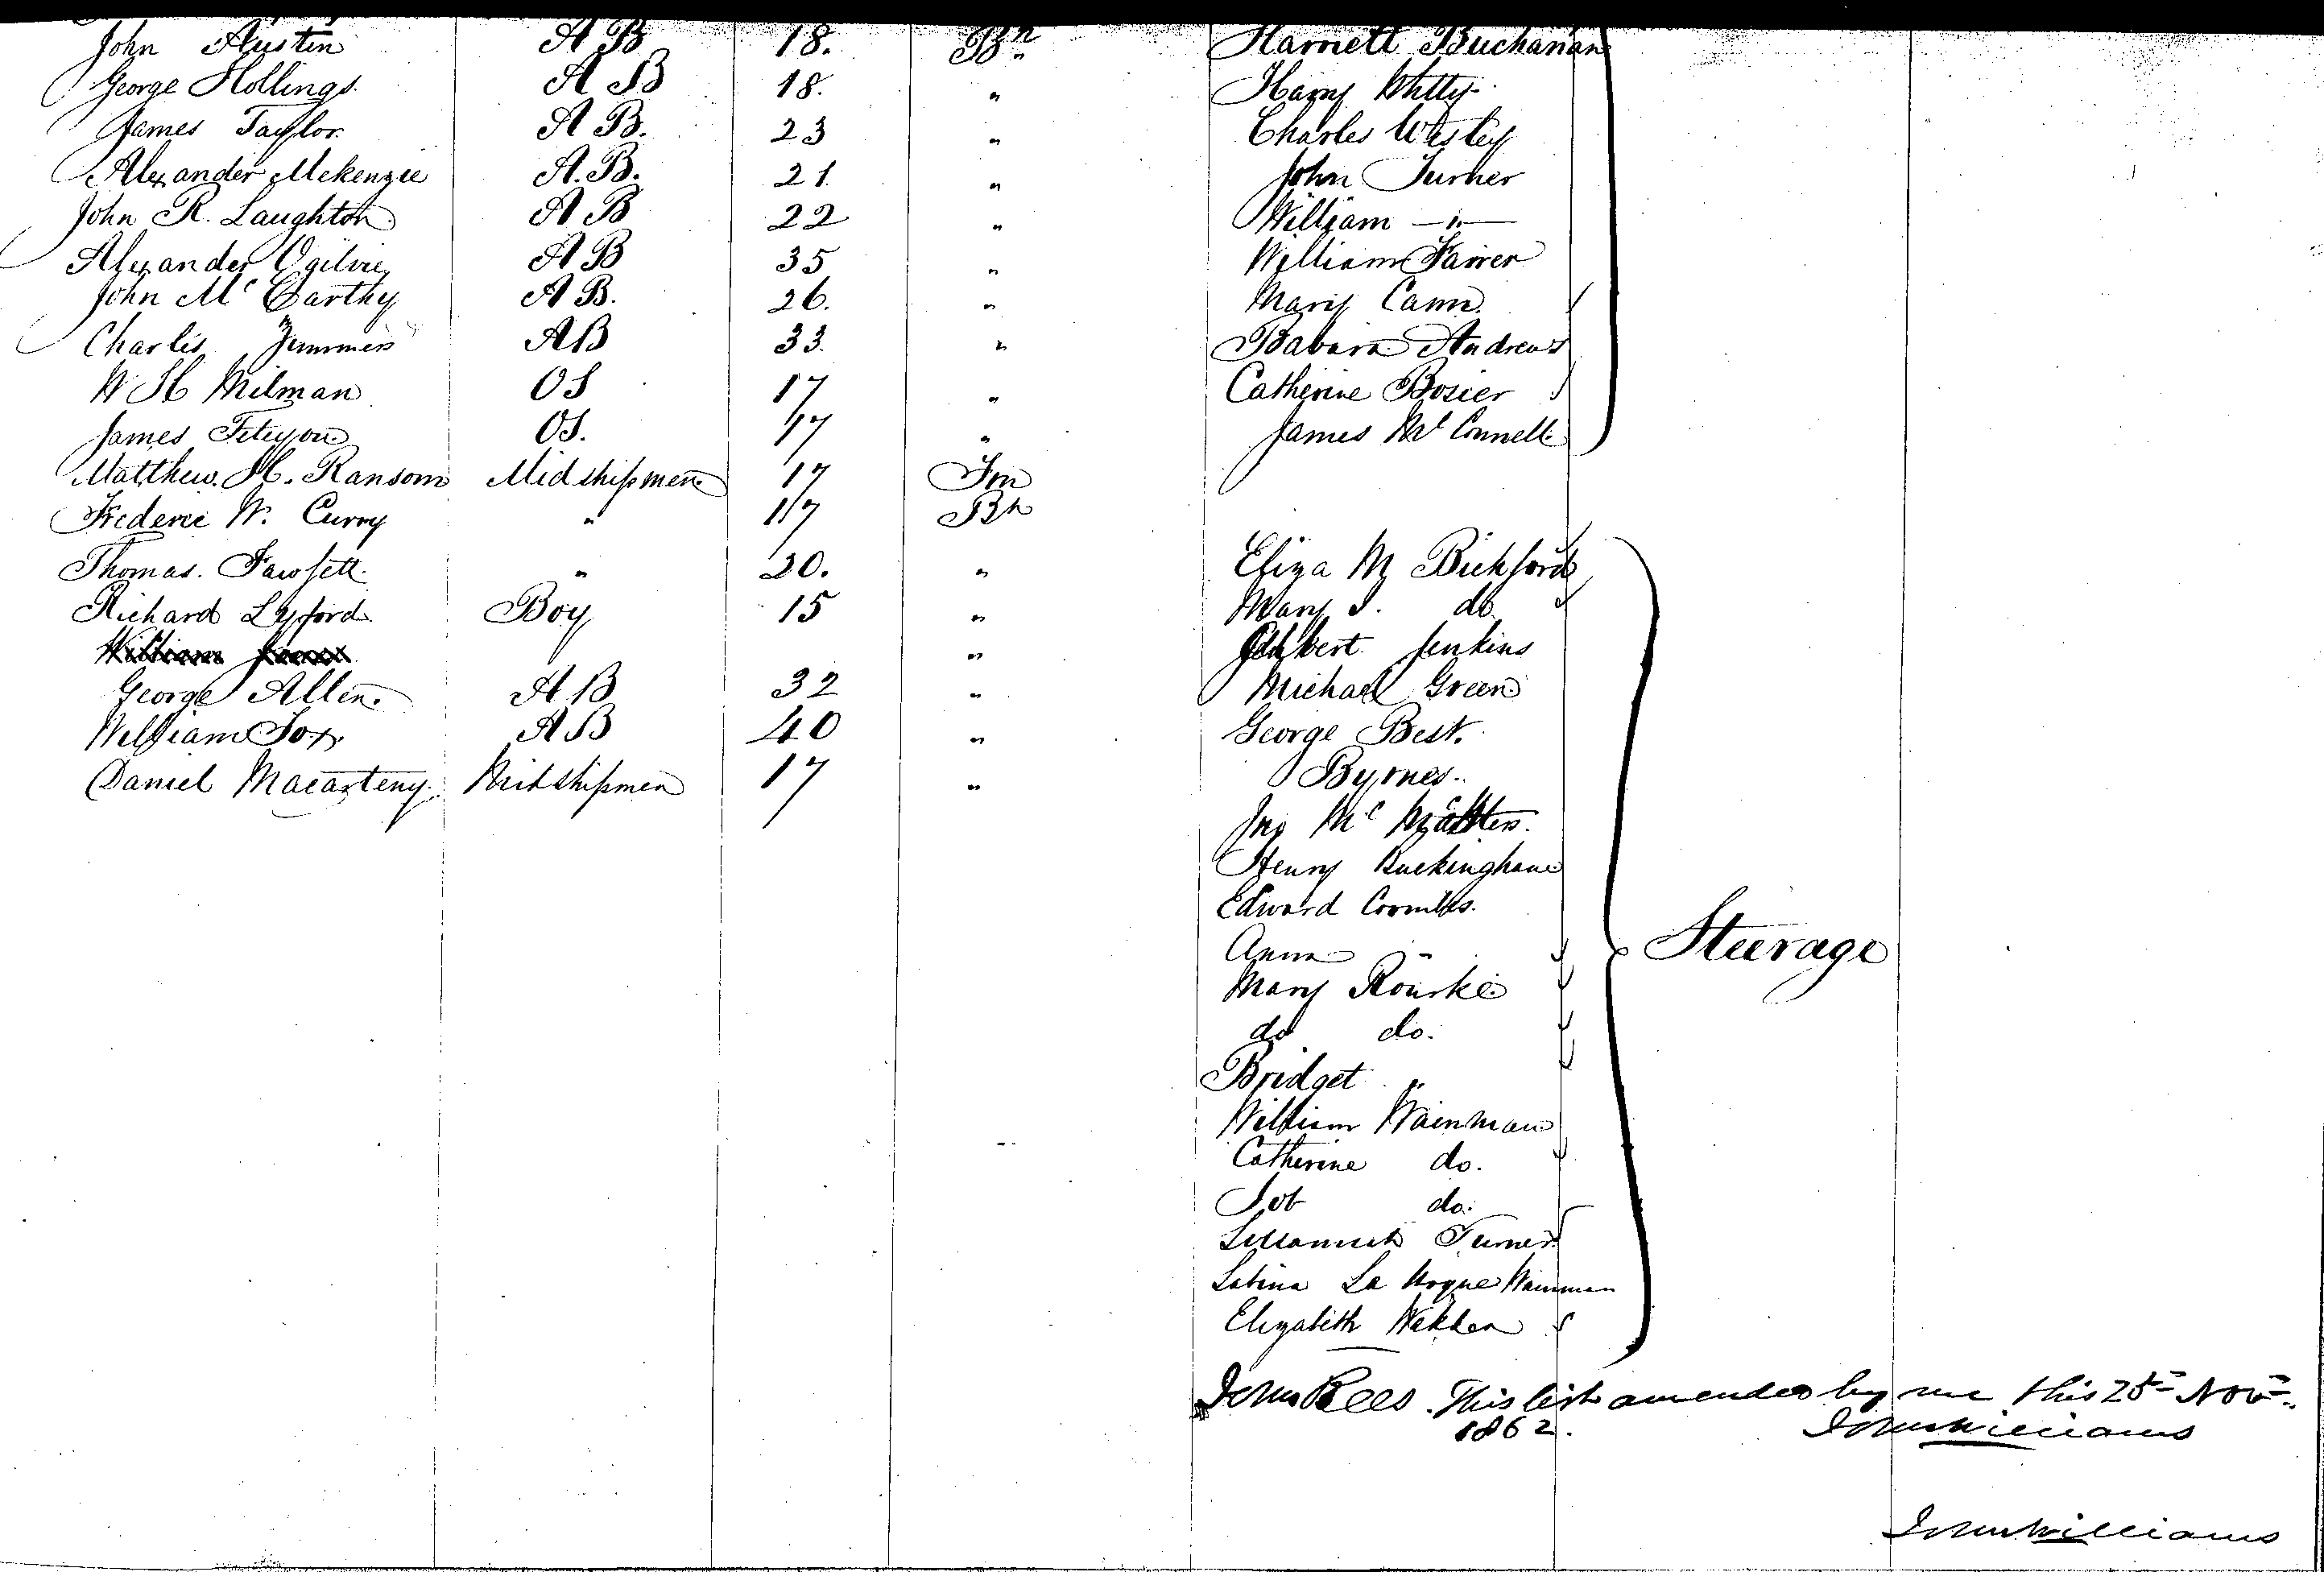 John Austin AB 18. Bn. Harnett Buchanan
George Hollings. AB 18. " Harry Whitty.
James Taylor. AB. 23 " Charles Wesley
Alexander Mekenzie A.B. 21. " John Turner
John R. Laughton AB 22 " William —"—
Alexander Ogilvie AB 35 " William Farrer
John Mc Carthy AB. 26. " Mary Cann.
Charles AB 33. " Babara Andrews
W H Milman OS 17 " Catherine Bosier
James OS. 17 " James Mc Connell.
Matthew. H. Ransom Midshipmen 17 Fm
Frederic W. Curry " 17 Bn
Thomas. Fawsett. " 20. " Eliza M Bickford
Richard Lyford. Boy 15 " Mary J. do.
" Jenkins
George Allen. AB 32 " Michael Green
William Fox. AB 40 " George Best.
Daniel Macarteny. Midshipmen 17 " Byrnes.
Jno Mc
Henry Buckingham
Edward Coombs.
Anna "
Steerage
Mary Rourke
do do.
Bridget "
William Wainman
Catherine do.
Job do.
Turner
Sabina La Wainman
Elizabeth
John Rees. This list amended by me this 25th Nov.
1862. John Williams
John Williams